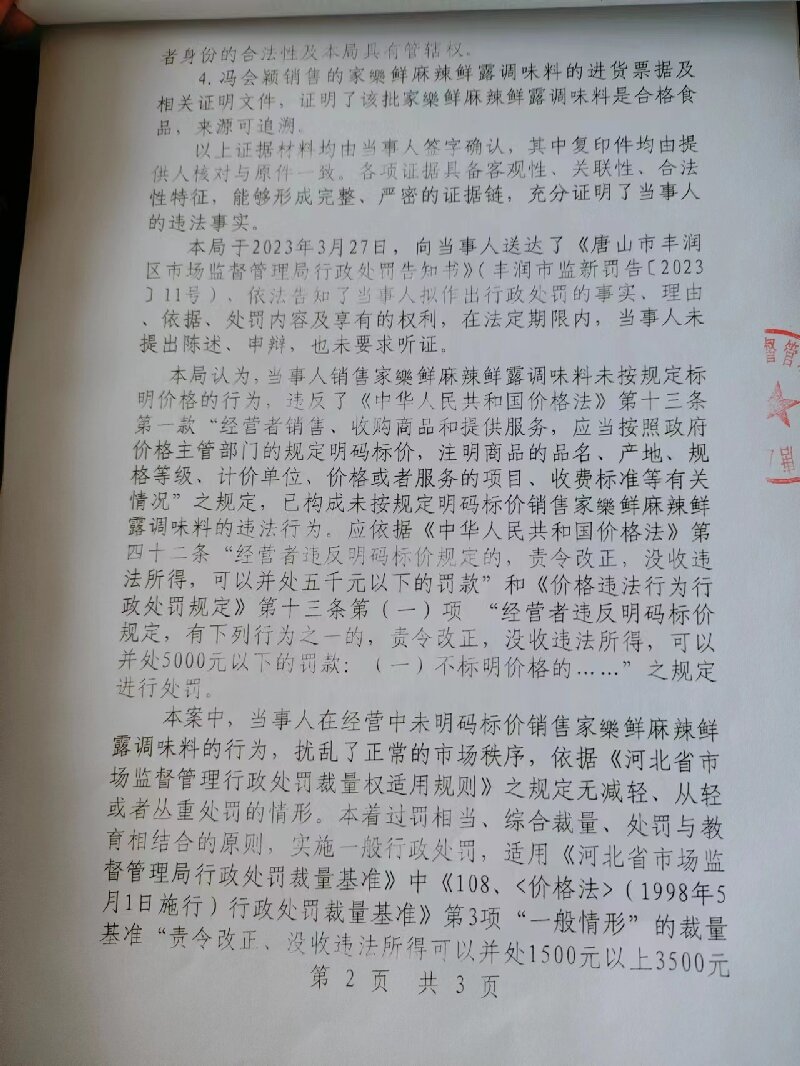 者身份的合法性及本局具有管辖权。
4.冯会颖销售的家樂鲜麻辣鲜露调味料的进货票据及
相关证明文件，证明了该批家樂鲜麻辣鲜露调味料是合格食
品，来源可追溯。
以上证据材料均由当事人签字确认，其中复印件均由提
供人核对与原件一致。各项证据具备客观性、关联性、合法
性特征，能够形成完整、严密的证据链，充分证明了当事人
的违法事实。
本局于2023年3月27日，向当事人送达了《唐山市丰润
区市场监督管理局行政处罚告知书》（丰润市监新罚告〔2023
〕11号），依法告知了当事人拟作出行政处罚的事实、理由
、依据、处罚内容及享有的权利，在法定期限内，当事人未
提出陈述、申辩，也未要求听证。
本局认为，当事人销售家樂鲜麻辣鲜露调味料未按规定标
明价格的行为，违反了《中华人民共和国价格法》第十三条
第一款“经营者销售、收购商品和提供服务，应当按照政府
价格主管部门的规定明码标价，注明商品的品名、产地、规
格等级、计价单位、价格或者服务的项目、收费标准等有关
情况”之规定，已构成未按规定明码标价销售家樂鲜麻辣鲜
露调味料的违法行为。应依据《中华人民共和国价格法》第
四十二条“经营者违反明码标价规定的，责令改正，没收违
法所得，可以并处五千元以下的罚款”和《价格违法行为行
政处罚规定》第十三条第（一）项 “经营者违反明码标价
规定，有下列行为之一的，责令改正，没收违法所得，可以
并处5000元以下的罚款：（一）不标明价格的……”之规定
进行处罚。
本案中，当事人在经营中未明码标价销售家樂鲜麻辣鲜
露调味料的行为，扰乱了正常的市场秩序，依据《河北省市
场监督管理行政处罚裁量权适用规则》之规定无减轻、从轻
或者从重处罚的情形。本着过罚相当、综合裁量、处罚与教
育相结合的原则，实施一般行政处罚，适用《河北省市场监
督管理局行政处罚裁量基准》中《108、<价格法>（1998年5
月1日施行）行政处罚裁量基准》第3项“一般情形”的裁量
基准“责令改正、没收违法所得可以并处1500元以上3500元
第 2 页 共 3 页
督管